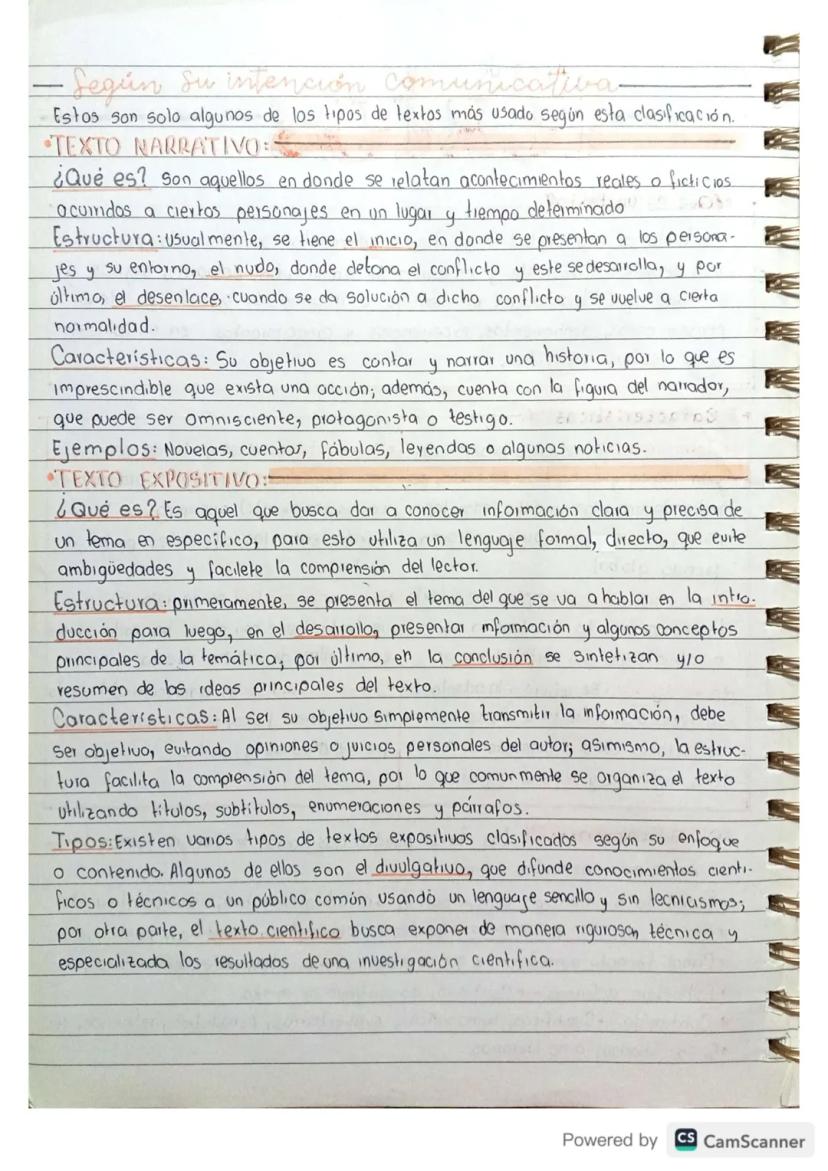 Según su intención comunicativa
Estos son solo algunos de los tipos de textos más usado según esta clasificación.
•TEXTO NARRATIVO:
¿Qué es? Son aquellos en donde se relatan acontecimientos reales o ficticios
ocurridos a ciertos personajes en un lugar y tiempo determinado
Estructura: usualmente, se tiene el inicio, en donde se presentan a los persona-
jes y su entorno, el nudo, donde detona el conflicto y este se desarrolla, y por
último, el desenlace, cuando se da solución a dicho conflicto y se vuelve a cierta
normalidad.
Características: Su objetivo es contar y narrar una historia, por lo que es
imprescindible que exista una acción; además, cuenta con la figura del narrador,
que puede ser omnisciente, protagonista o testigo.
Ejemplos: Novelas, cuentos, fábulas, leyendas o algunas noticias.
•TEXTO EXPOSITIVO:
¿Qué es? Es aquel que busca dar a conocer información clara y precisa de
un tema en específico, para esto utiliza un lenguaje formal, directo, que evite
ambigüedades y facilete la comprensión del lector.
Estructura: primeramente, se presenta el tema del que se va a hablar en la intro-
ducción para luego, en el desarrollo, presentar información y algunos conceptos
principales de la temática, por último, en la conclusión se sintetizan y/o
resumen de las ideas principales del texto.
Características: Al ser su objetivo simplemente transmitir la información, debe
ser objetivo, evitando opiniones o juicios personales del autor; asimismo, la estruc-
tura facilita la comprensión del tema, por lo que comunmente se organiza el texto
utilizando títulos, subtítulos, enumeraciones y párrafos.
Tipos: Existen varios tipos de textos expositivos clasificados según su enfoque
o contenido. Algunos de ellos son el divulgativo, que difunde conocimientos cientí-
ficos o técnicos a un público común usando un lenguaje sencillo y sin tecnicismos;
por otra parte, el texto científico busca exponer de manera rigurosa, técnica y
especializada los resultados de una investigación científica.
Powered by CS CamScanner